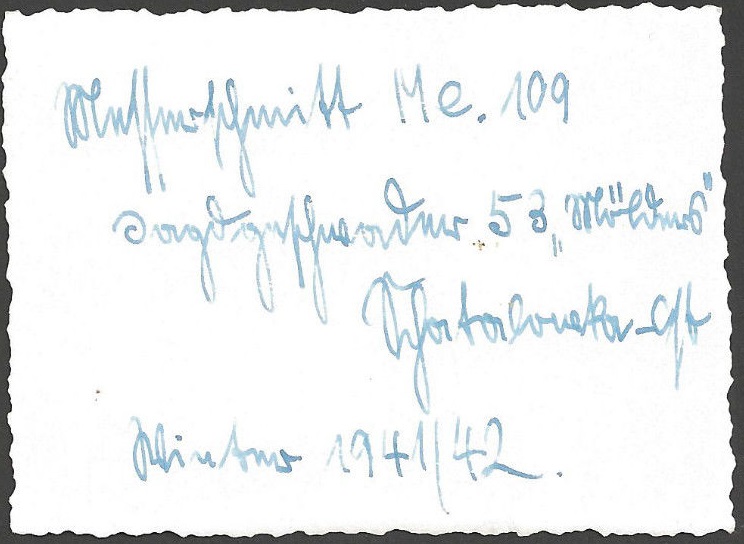 Messerschmitt Me. 109
Jagdgeschwader 53 „Mölders“
Schatalowka-Ost
Winter 1941/42.